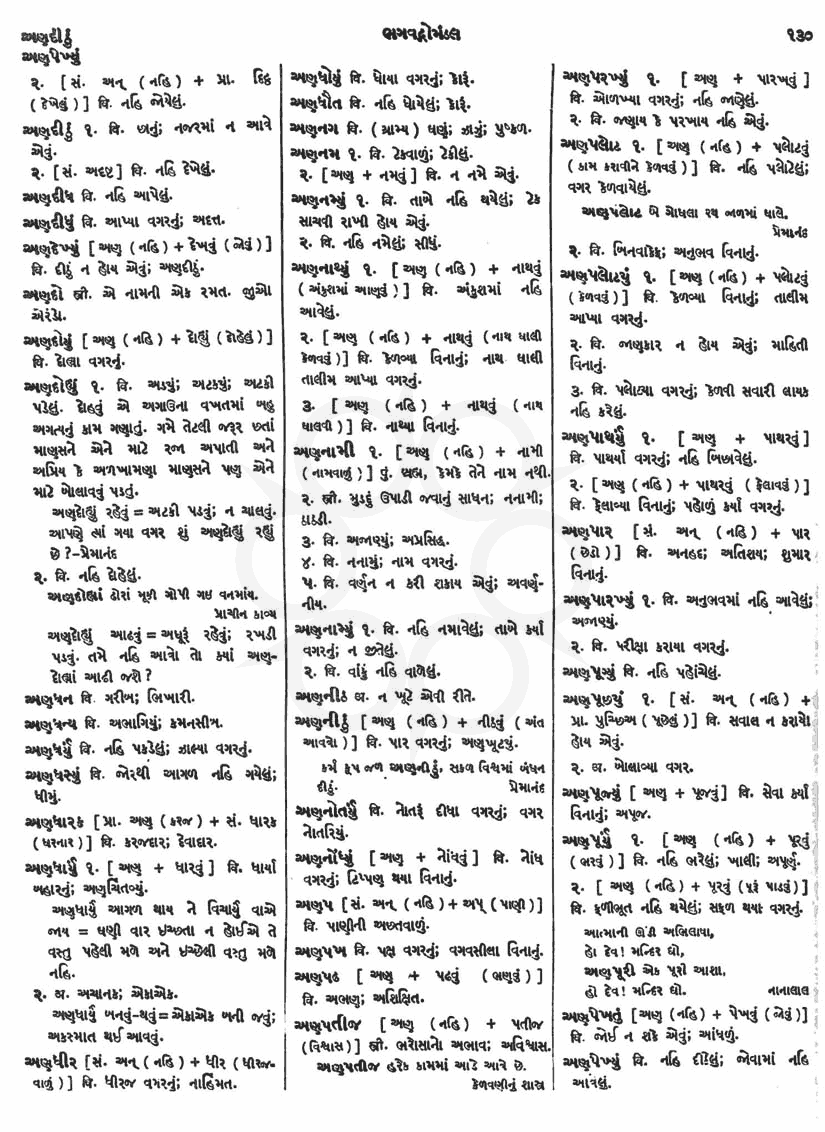 અણુદીઠું
અણુપેખ્યું
ભગવદ્ગોમંડલ
૧૩૦
૨. [ સં. અન્ ( નહિ ) + પ્રા. દિઠ્ઠ
( દેખેલું ) ] વિ. નહિ જોયેલું.
અણુદીઠું ૧. વિ. છાનું; નજરમાં ન આવે
એવું.
૨. [ સં. અદષ્ટ ] વિ. નહિ દેખેલું.
અણુદીધ વિ. નહિ આપેલું.
અણુદીધું વિ. આપ્યા વગરનું; અદત્ત.
અણુદેખ્યું [ અણુ ( નહિ ) + દેખવું ( જોવું ) ]
વિ. દીઠું ન હોય એવું; અણુદીઠું.
અણુદો સ્ત્રી. એ નામની એક રમત. જુઓ
એરંડો.
અણુદોયું [ અણુ ( નહિ ) + દોહ્યું ( દોહેલું ) ]
વિ. દોહ્યા વગરનું.
અણુદોહ્યું ૧. વિ. અડ્યું; અટક્યું; અટકી
પડેલું. દોહવું એ અગાઉના વખતમાં બહુ
અગત્યનું કામ ગણાતું. ગમે તેટલી જરૂર છતાં
માણસને એને માટે રજા અપાતી અને
અપ્રિય કે અળખામણા માણસને પણ એને
માટે બોલાવવું પડતું.
અણુદોહ્યું રહેવું = અટકી પડવું; ન ચાલવું.
આપણે ત્યાં ગયા વગર શું અણુદોહ્યું રહ્યું
છે ?–પ્રેમાનંદ
૨. વિ. નહિ દોહેલું.
અણુદોહ્યાં ઢોરાં મૂકી ગોપી ગઇ વનમાંય.
પ્રાચીન કાવ્ય
અણુદોહ્યું આઢવું = અધૂરૂં રહેવું; રખડી
પડવું. તમે નહિ આવો તો ક્યાં અણુ-
દોહ્યાં આઢી જશે ?
અણુધન વિ. ગરીબ; ભિખારી.
અણુધન્ય વિ. અભાગિયું; કમનસીબ.
અણુધર્યું વિ. નહિ પકડેલું; ઝાલ્યા વગરનું.
અણુધસ્યું વિ. જોરથી આગળ નહિ ગયેલું;
ધીમું.
અણુધારક [ પ્રા. અણુ ( કરજ ) + સં. ધારક
( ધરનાર ) ] વિ. કરજદાર; દેવાદાર.
અણુધાર્યું ૧. [ અણુ + ધારવું ] વિ. ધાર્યા
બહારનું; અણુચિંતવ્યું.
અણુધાર્યું આગળ થાય ને વિચાર્યું વાએ
જાય = ઘણી વાર ઇચ્છતા ન હોઈએ તે
વસ્તુ પહેલી મળે અને ઇચ્છેલી વસ્તુ મળે
નહિ.
૨. અ. અચાનક; એકાએક.
અણુધાર્યું બનવું-થવું = એકાએક બની જવું;
અકસ્માત થઈ આવવું.
અણુધીર [ સં. અન્ ( નહિ ) + ધીર ( ધીરજ-
વાળું ) ] વિ. ધીરજ વગરનું; નાહિંમત.
અણુધોયું વિ. ધોયા વગરનું; કોરૂં.
અણુધૌત વિ. નહિ ધોયેલું; કોરૂં.
અણુનગ વિ. ( ગ્રામ્ય ) ઘણું; ઝાઝું; પુષ્કળ.
અણુનમ ૧. વિ. ટેકવાળું; ટેકીલું.
૨. [ અણુ + નમવું ] વિ. ન નમે એવું.
અણુનમ્યું ૧. વિ. તાબે નહિ થયેલું; ટેક
સાચવી રાખી હોય એવું.
૨. વિ. નહિ નમેલું; સીધું.
અણુનાથ્યું ૧. [ અણુ ( નહિ ) + નાથવું
( અંકુશમાં આણવું ) ] વિ. અંકુશમાં નહિ
આવેલું.
૨. [ અણુ ( નહિ ) + નાથવું ( નાથ ઘાલી
કેળવવું ) ] વિ. કેળવ્યા વિનાનું; નાથ ઘાલી
તાલીમ આપ્યા વગરનું.
૩. [ અણુ ( નહિ ) + નાથવું ( નાથ
ઘાલવી ) ] વિ. નાથ્યા વિનાનું.
અણુનામી ૧. [ અણુ ( નહિ ) + નામી
( નામવાળું ) ] પું. બ્રહ્મ, કેમકે તેને નામ નથી.
૨. સ્ત્રી. મુડદું ઉપાડી જવાનું સાધન; નનામી;
ઠાઠડી.
૩. વિ. અજાણ્યું; અપ્રસિદ્ધ.
૪. વિ. નનામું; નામ વગરનું.
૫. વિ. વર્ણન ન કરી શકાય એવું; અવર્ણ-
નીય.
અણુનામ્યું ૧. વિ. નહિ નમાવેલું; તાબે કર્યા
વગરનું; ન જીતેલું.
૨. વિ. વાંકું નહિ વાળેલું.
અણુનીઠ અ. ન ખૂટે એવી રીતે.
અણુનીઠું [ અણુ ( નહિ ) + નીઠવું ( અંત
આવવો ) ] વિ. પાર વગરનું; અણુખૂટ્યું.
કર્મ કૂપ જળ અણુનીઠું, સકળ વિશ્વમાં બંધન
દીઠું. પ્રેમાનંદ
અણુનોતર્યું વિ. નોતરૂં દીધા વગરનું; વગર
નોતરિયું.
અણુનોંધ્યું [ અણુ + નોંધવું ] વિ. નોંધ
વગરનું; ટિપ્પણ થયા વિનાનું.
અણુપ [ સં. અન્ ( નહિ ) + અપ્ ( પાણી ) ]
વિ. પાણીની અછતવાળું.
અણુપખ વિ. પક્ષ વગરનું; વગવસીલા વિનાનું.
અણુપઢ [ અણુ + પઢવું ( ભણવું ) ]
વિ. અભણ; અશિક્ષિત.
અણુપતીજ [ અણુ ( નહિ ) + પતીજ
( વિશ્વાસ ) ] સ્ત્રી. ભરોસાનો અભાવ; અવિશ્વાસ.
અણુપતીજ હરેક કામમાં આડે આવે છે.
કેળવણીનું શાસ્ત્ર
અણુપરખ્યું ૧. [ અણુ + પારખવું ]
વિ. ઓળખ્યા વગરનું; નહિ જાણેલું.
૨. વિ. જણાય કે પરખાય નહિ એવું.
અણુપલોટ ૧. [ અણુ ( નહિ ) + પલોટવું
( કામ કરાવીને કેળવવું ) ] વિ. નહિ પલોટેલું;
વગર કેળવાયેલું.
અણુપલોટ બે ગોધલા રથ જાળમાં ઘાલે.
પ્રેમાનંદ
૨. વિ. બિનવાકેફ; અનુભવ વિનાનું.
અણુપલોટયું ૧. [ અણુ ( નહિ ) + પલોટવું
( કેળવવું ) ] વિ. કેળવ્યા વિનાનું; તાલીમ
આપ્યા વગરનું.
૨. વિ. જાણકાર ન હોય એવું; માહિતી
વિનાનું.
૩. વિ. પલોટ્યા વગરનું; કેળવી સવારી લાયક
નહિ કરેલું.
અણુપાથર્યું ૧. [ અણુ + પાથરવું ]
વિ. પાથર્યા વગરનું; નહિ બિછાવેલું.
૨. [ અણુ ( નહિ ) + પાથરવું ( ફેલાવવું ) ]
વિ. ફેલાવ્યા વિનાનું; પહોળું કર્યા વગરનું.
અણુપાર [ સં. અન્ ( નહિ ) + પાર
( છેડો ) ] વિ. અનહદ; અતિશય; શુમાર
વિનાનું.
અણુપારખ્યું ૧. વિ. અનુભવમાં નહિ આવેલું;
અજાણ્યું.
૨. વિ. પરીક્ષા કરાયા વગરનું.
અણુપૂગ્યું વિ. નહિ પહોંચેલું.
અણુપૂછયું ૧. [ સં. અન્ ( નહિ ) +
પ્રા. પુચ્છિઅ ( પૂછેલું ) ] વિ. સવાલ ન કરાયો
હોય એવું.
૨. અ. બોલાવ્યા વગર.
અણુપૂજ્યું [ અણુ + પૂજવું ] વિ. સેવા કર્યા
વિનાનું; અપૂજ.
અણુપૂર્યું ૧. [ અણુ ( નહિ ) + પૂરવું
( ભરવું ) ] વિ. નહિ ભરેલું; ખાલી; અપૂર્ણ.
૨. [ અણુ ( નહિ ) + પૂરવું ( પૂરૂં પાડવું ) ]
વિ. ફળીભૂત નહિ થયેલું; સફળ થયા વગરનું.
આત્માની ઊંડી અભિલાષા,
હો દેવ! મન્દિર ઘો,
અણુપૂરી એક પૂરો આશા,
હો દેવ! મન્દિર ઘો. નાનાલાલ
અણુપેખતું [ અણુ ( નહિ ) + પેખવું ( જોવું ) ]
વિ. જોઈ ન શકે એવું; આંધળું.
અણુપેખ્યું વિ. નહિ દીઠેલું; જોવામાં નહિ
આવેલું.